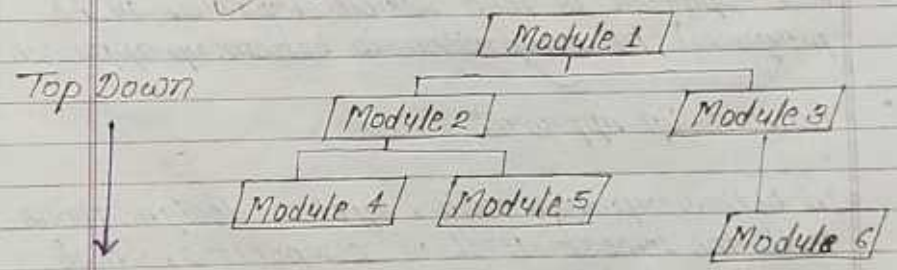 Module 1
Top Down
Module 2 Module 3
Module 4 Module 5
Module 6